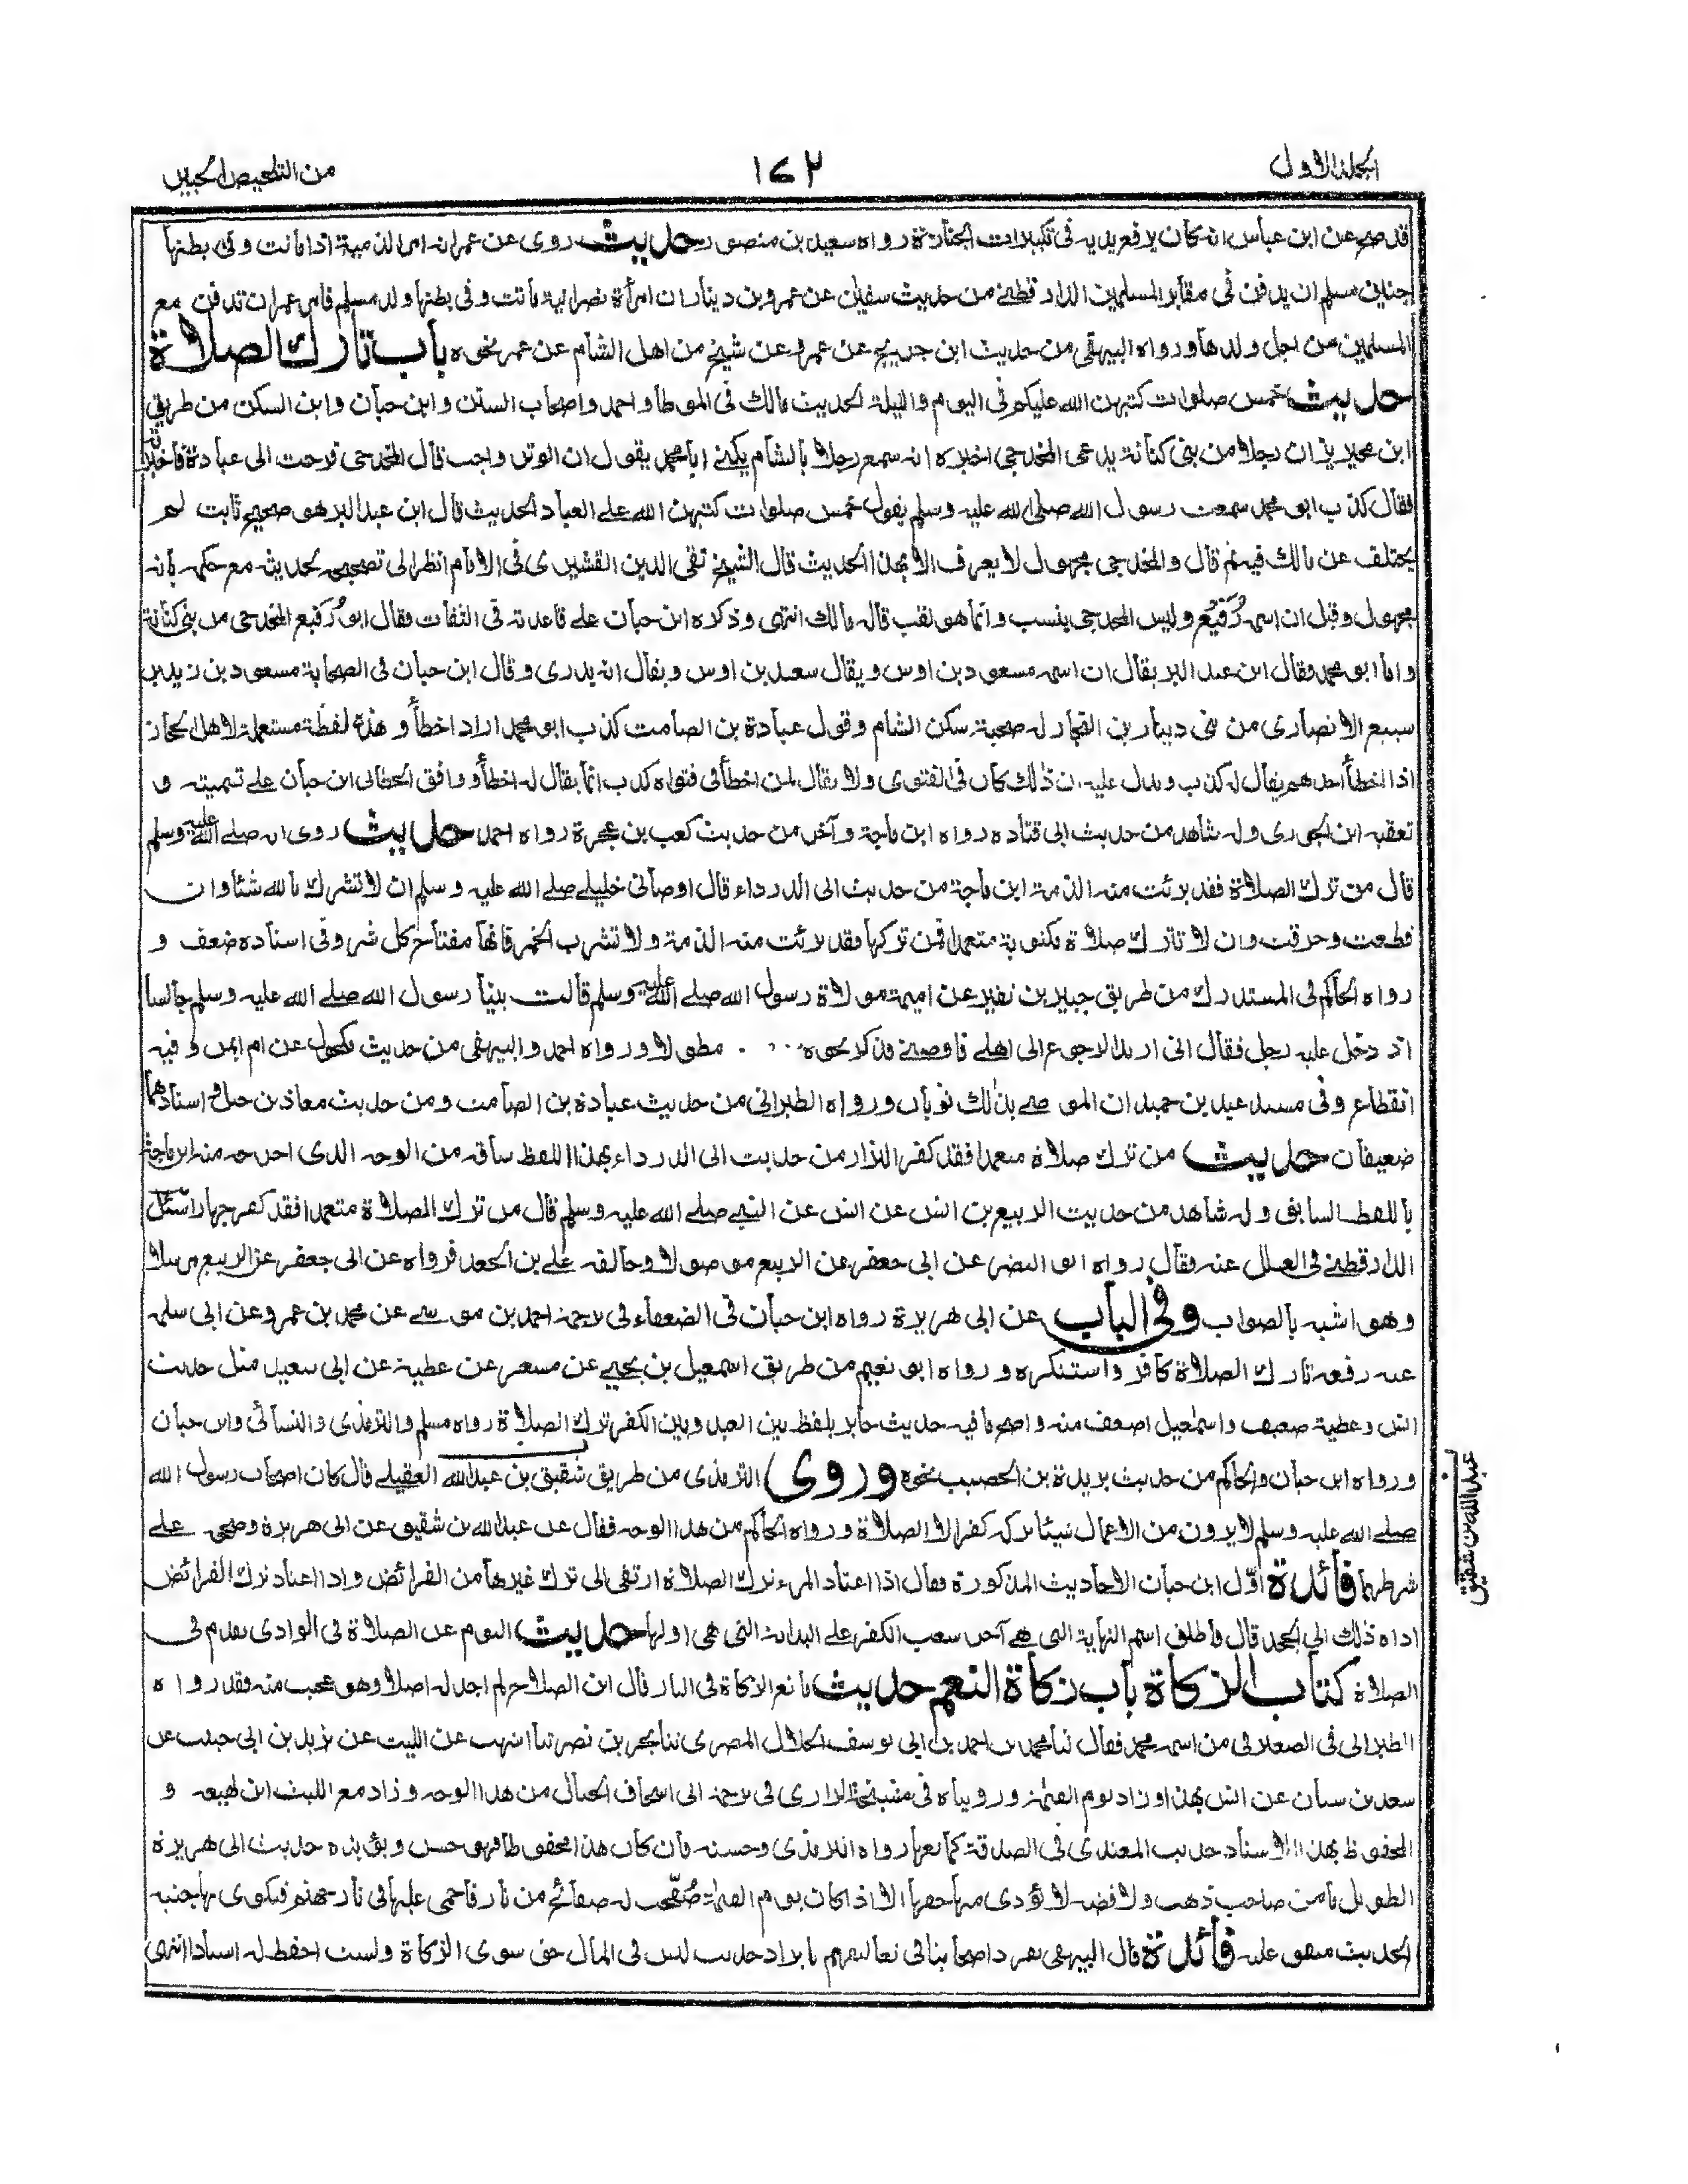 المجلد الاول
١٧٢
من التلخيص الحبير
قد صح عن ابن عباس انه كان يرفع يديه فى تكبيرات الجنازة رواه سعيد بن منصور حديث روى عن عمر انه امر الذمية اذا ماتت وفى بطنها
جنين مسلم ان يدفن فى مقابر المسلمين الدارقطنى من حديث سفيان عن عمرو بن دينار ان امرأة نصرانية ماتت وفى بطنها ولد مسلم فامر عمر ان تدفن مع
المسلمين من اجل ولدها ورواه البيهقى من حديث ابن جريج عن عمرو عن شيخ من اهل الشام عن عمر نحوه باب تارك الصلاة
حديث خمس صلوات كتبهن الله عليكم فى اليوم والليلة الحديث مالك فى الموطأ واحمد واصحاب السنن وابن حبان وابن السكن من طريق
ابن محيريز ان رجلا من بنى كنانة يدعى المخدجى اخبره انه سمع رجلا بالشام يكنى ابا محمد يقول ان الوتر واجب قال المخدجى فرحت الى عبادة فاخبرته
فقال كذب ابو محمد سمعت رسول الله صلى الله عليه وسلم يقول خمس صلوات كتبهن الله على العباد الحديث قال ابن عبد البر هو صحيح ثابت لم
يختلف عن مالك فيه ثم قال والمخدجى مجهول لا يعرف الا بهذا الحديث قال الشيخ تقى الدين القشيرى فى الامام انظر الى تصحيحه لحديثه مع حكمه بانه
مجهول وقيل ان اسمه رُفَيْع وليس المخدجى بنسب وانما هو لقب قاله مالك انتهى وذكره ابن حبان على قاعدته فى الثقات فقال ابو رُفيع المخدجى من بنى كنانة
واما ابو محمد فقال ابن عبد البر يقال ان اسمه مسعود بن اوس ويقال سعد بن اوس ويقال انه بدرى وقال ابن حبان فى الصحابة مسعود بن زيد بن
سبيع الانصارى من بنى دينار بن النجار له صحبة سكن الشام وقول عبادة بن الصامت كذب ابو محمد اراد اخطأ وهذه لفظة مستعملة لاهل الحجاز
اذا اخطأ احدهم يقال له كذب ويدل عليه ان ذلك كان فى الفتوى ولا يقال لمن اخطأ فى فتواه كذب انما يقال له اخطأ ووافق الخطابى ابن حبان على تسميته و
تعقبه ابن الجوزى وله شاهد من حديث ابى قتادة رواه ابن ماجة وآخر من حديث كعب بن عجرة رواه احمد حديث روى انه صلى الله عليه وسلم
قال من ترك الصلاة فقد برئت منه الذمة ابن ماجة من حديث ابى الدرداء قال اوصانى خليلى صلى الله عليه وسلم ان لا تشرك بالله شئا وان
قطعت وحرقت وان لا تترك صلاة مكتوبة متعمدا فمن تركها فقد برئت منه الذمة ولا تشرب الخمر فانها مفتاح كل شر وفى اسناده ضعف و
رواه الحاكم فى المستدرك من طريق جبير بن نفير عن اميمة مولاة رسول الله صلى الله عليه وسلم قالت بينا رسول الله صلى الله عليه وسلم جالسا
اذ دخل عليه رجل فقال انى اريد الرجوع الى اهلى فاوصنى فذكر نحوه مطولا ورواه احمد والبيهقى من حديث مكحول عن ام ايمن وفيه
انقطاع وفى مسند عبد بن حميد ان الموصى بذلك ثوبان ورواه الطبرانى من حديث عبادة بن الصامت ومن حديث معاذ بن جبل واسنادهما
ضعيفان حديث من ترك صلاة متعمدا فقد كفر البزار من حديث ابى الدرداء بهذا اللفظ ساقه من الوجه الذى اخرجه منه ابن ماجة
باللفظ السابق وله شاهد من حديث الربيع بن انس عن انس عن النبى صلى الله عليه وسلم قال من ترك الصلاة متعمدا فقد كفر جهارا سئل
الدارقطنى فى العلل عنه فقال رواه ابو النضر عن ابى جعفر عن الربيع موصولا وخالفه على بن الجعد فرواه عن ابى جعفر عن الربيع مرسلا
وهو اشبه بالصواب وفى الباب عن ابى هريرة رواه ابن حبان فى الضعفاء فى ترجمة احمد بن موسى عن محمد بن عمرو عن ابى سلمة
عنه رفعه تارك الصلاة كافر واستنكره ورواه ابو نعيم من طريق اسمعيل بن يحيى عن مسعر عن عطية عن ابى سعيد مثل حديث
انس وعطية ضعيف واسمعيل اضعف منه واصح ما فيه حديث جابر بلفظ بين العبد وبين الكفر ترك الصلاة رواه مسلم والترمذى والنسائى وابن حبان
ورواه ابن حبان والحاكم من حديث بريدة بن الحصيب نحوه وروى الترمذى من طريق شقيق بن عبد الله العقيلى قال كان اصحاب رسول الله
صلى الله عليه وسلم لا يرون من الاعمال شيئا تركه كفر الا الصلاة ورواه الحاكم من هذا الوجه فقال عن عبد الله بن شقيق عن ابى هريرة وصححه على
شرطهما فائدة اوّل ابن حبان الاحاديث المذكورة فقال اذا اعتاد المرء ترك الصلاة ارتقى الى ترك غيرها من الفرائض واذا اعتاد ترك الفرائض
اداه ذلك الى الجحد قال فاطلق اسم النهاية التى هى آخر شعب الكفر على البداية التى هى اولها حديث النوم عن الصلاة فى الوادى تقدم فى
الصلاة كتاب الزكاة باب زكاة النعم حديث مانع الزكاة فى النار قال ابن الصلاح لم اجد له اصلا وهو عجيب منه فقد رواه
الطبرانى فى الصغير فى من اسمه محمد فقال ثنا محمد بن احمد بن ابى يوسف الخلال المصرى ثنا بحر بن نصر ثنا اشهب عن الليث عن يزيد بن ابى حبيب عن
سعد بن سنان عن انس بهذا وزاد يوم القيمة ورويناه فى مشيخة الرازى فى ترجمة ابى اسحاق الحبال من هذا الوجه وزاد مع الليث ابن لهيعة و
المحفوظ بهذا الاسناد حديث المعتدى فى الصدقة كمانعها رواه الترمذى وحسنه فان كان هذا محفوظا فهو حسن ويؤيده حديث ابى هريرة
الطويل ما من صاحب ذهب ولا فضة لا يؤدى منها حقها الا اذا كان يوم القيمة صُفّحت له صفائح من نار فاحمى عليها فى نار جهنم فيكوى بها جنبه
الحديث متفق عليه فائدة قال البيهقى تفرد اصحابنا فى تعاليقهم بايراد حديث ليس فى المال حق سوى الزكاة ولست احفظ له اسنادا انتهى
عبد الله بن شقيق